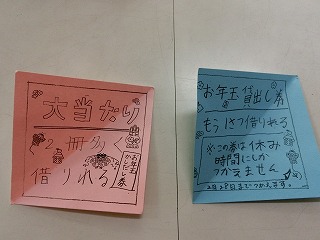 大当たり
2冊多く
借りれる
お年玉
かしだし券
お年玉貸出し券
もう1さつ借りれる
※この券は休み
時間にしか
つかえません
2月28日までつかえます。